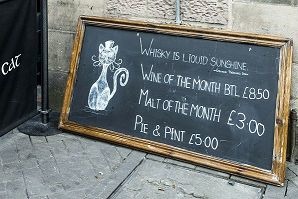 CAT
WHISKY IS LIQUID SUNSHINE.
WINE OF THE MONTH BTL £8.50
MALT OF THE MONTH £3.00
PIE & PINT £5.00